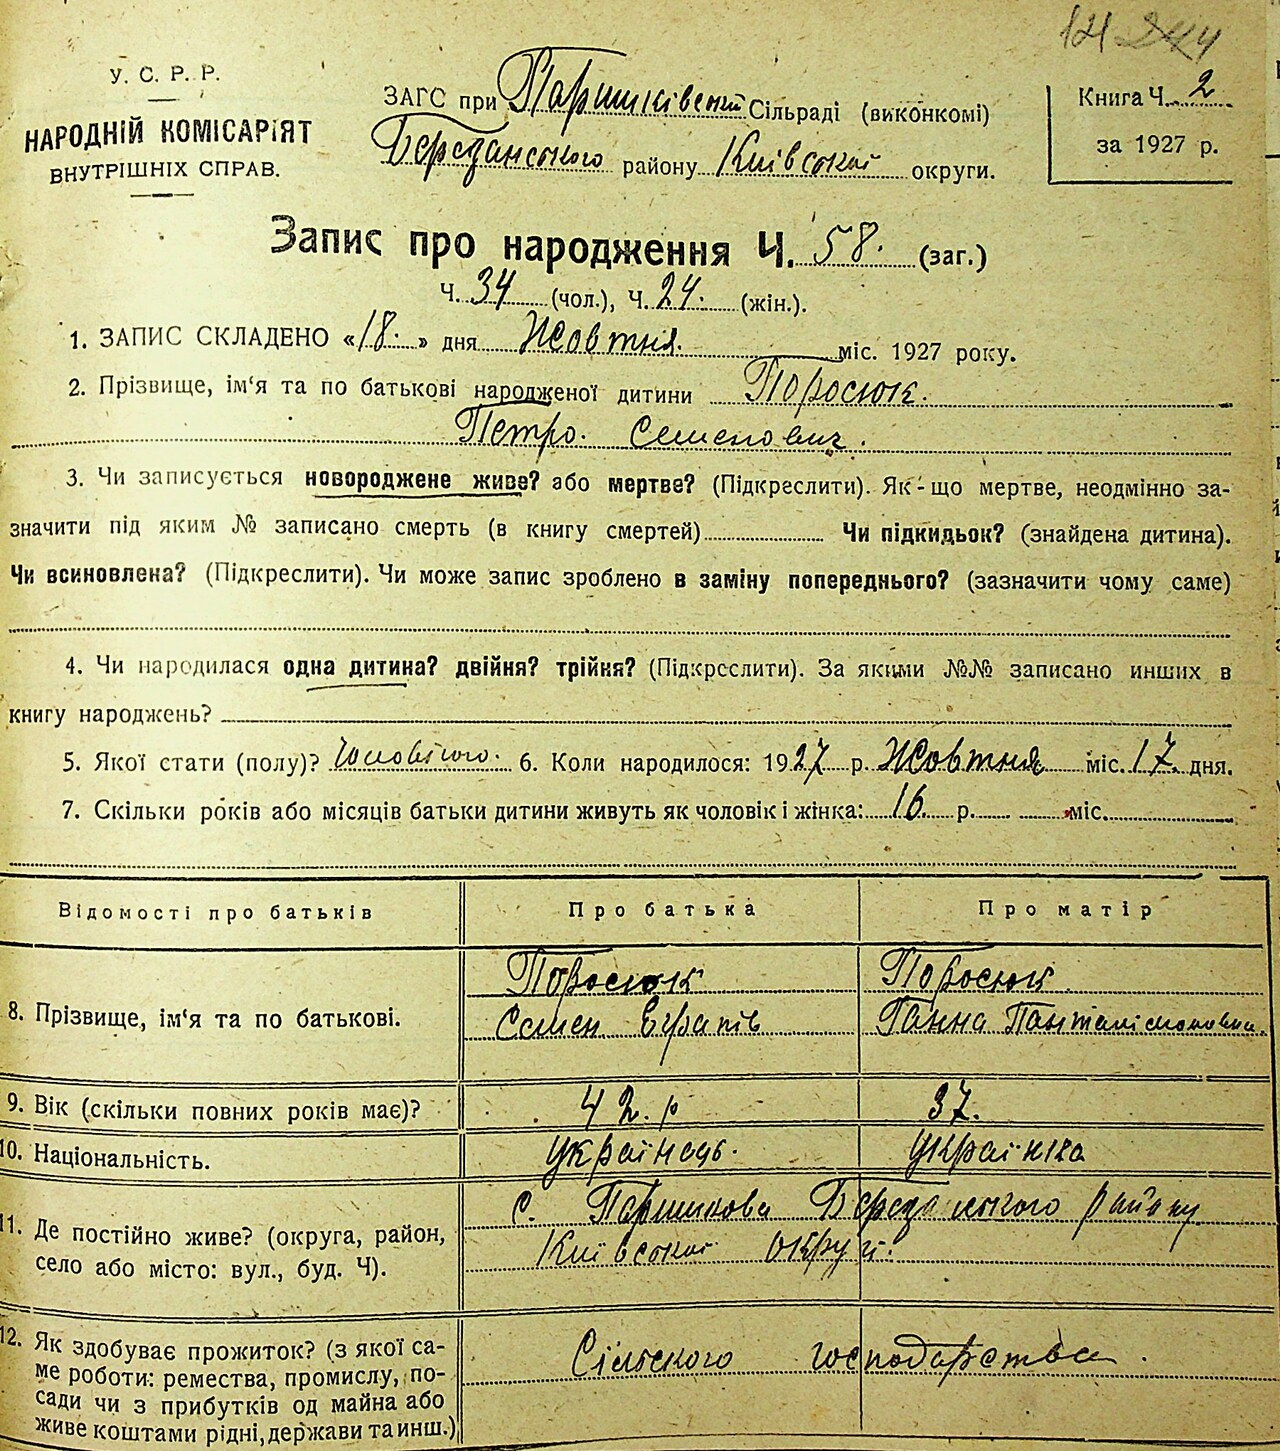 121 244
У. С. Р. Р.
НАРОДНІЙ КОМІСАРІЯТ
ВНУТРІШНІХ СПРАВ.
ЗАГС при Паришківській Сільраді (виконкомі)
Березанського району Київської округи.
Книга Ч. 2
за 1927 р.
Запис про народження Ч. 58. (заг.)
Ч. 34 (чол.), Ч. 24. (жін.).
1. ЗАПИС СКЛАДЕНО «18.» дня Жовтня міс. 1927 року.
2. Прізвище, ім‘я та по батькові народженої дитини Поросюк.
Петро. Семенович.
3. Чи записується новороджене живе? або мертве? (Підкреслити). Як-що мертве, неодмінно за-
значити під яким № записано смерть (в книгу смертей) Чи підкидьок? (знайдена дитина).
Чи всиновлена? (Підкреслити). Чи може запис зроблено в заміну попереднього? (зазначити чому саме)
4. Чи народилася одна дитина? двійня? трійня? (Підкреслити). За якими №№ записано инших в
книгу народжень?
5. Якої стати (полу)? Чоловічого. 6. Коли народилося: 1927 р. Жовтня міс. 17 дня.
7. Скільки років або місяців батьки дитини живуть як чоловік і жінка: 16 р. міс.
Відомості про батьків Про батька Про матір
8. Прізвище, ім‘я та по батькові.
Поросюк Поросюк
Семен Ганна
9. Вік (скільки повних років має)? 42. р 37.
10. Національність. Українець. Українка
11. Де постійно живе? (округа, район,
село або місто: вул., буд. Ч).
с. Паришкова Березанського району
Київської округи.
12. Як здобуває прожиток? (з якої са-
ме роботи: ремества, промислу, по-
сади чи з прибутків од майна або
живе коштами рідні, держави та инш.)
Сільского господарства.